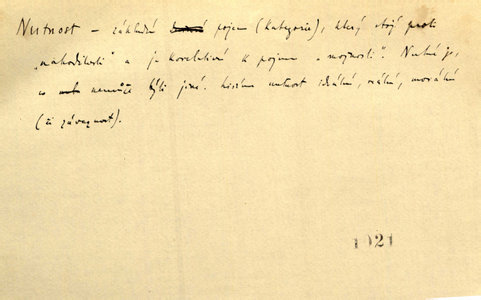 Nutnost – základní pojem (kategorie), který stojí proti
„nahodilosti“ a je korelativní k pojmu „možnosti“. Nutné je,
co nemůže býti jiné. nutnost ideální, reální, morální
(či závaznost).
1921